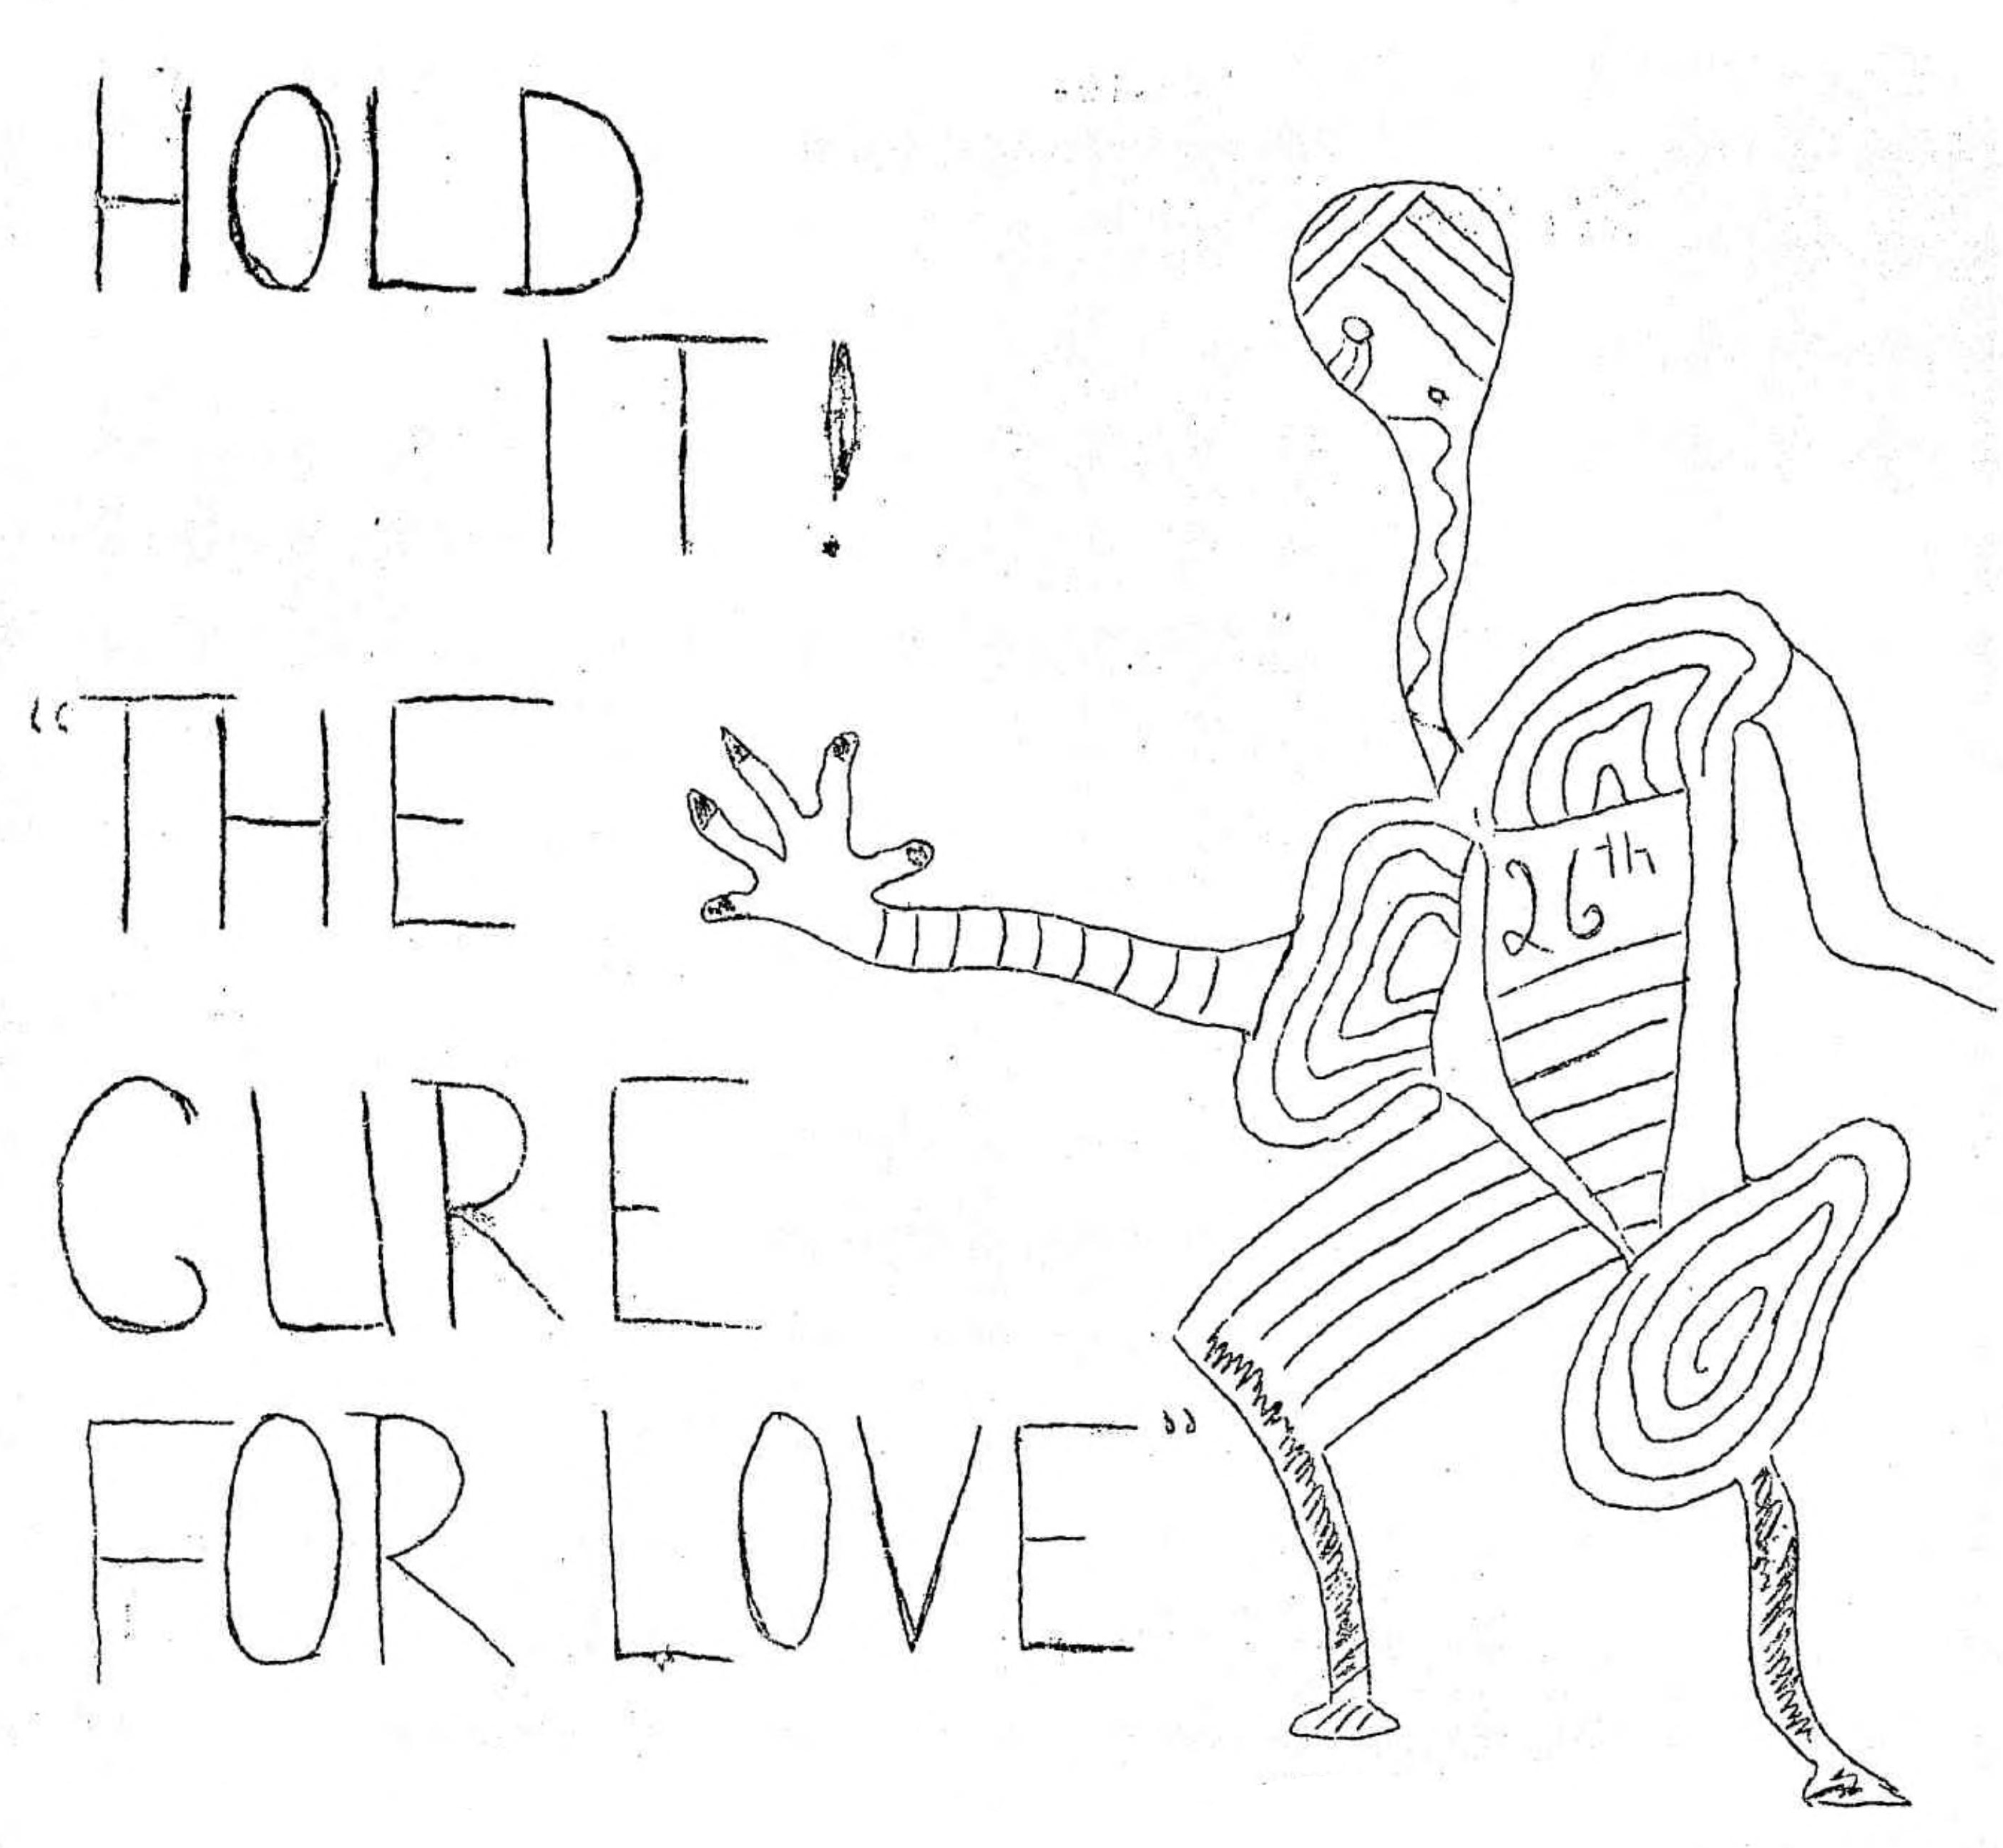 HOLD
IT!
“THE
CURE
FOR LOVE”
26th